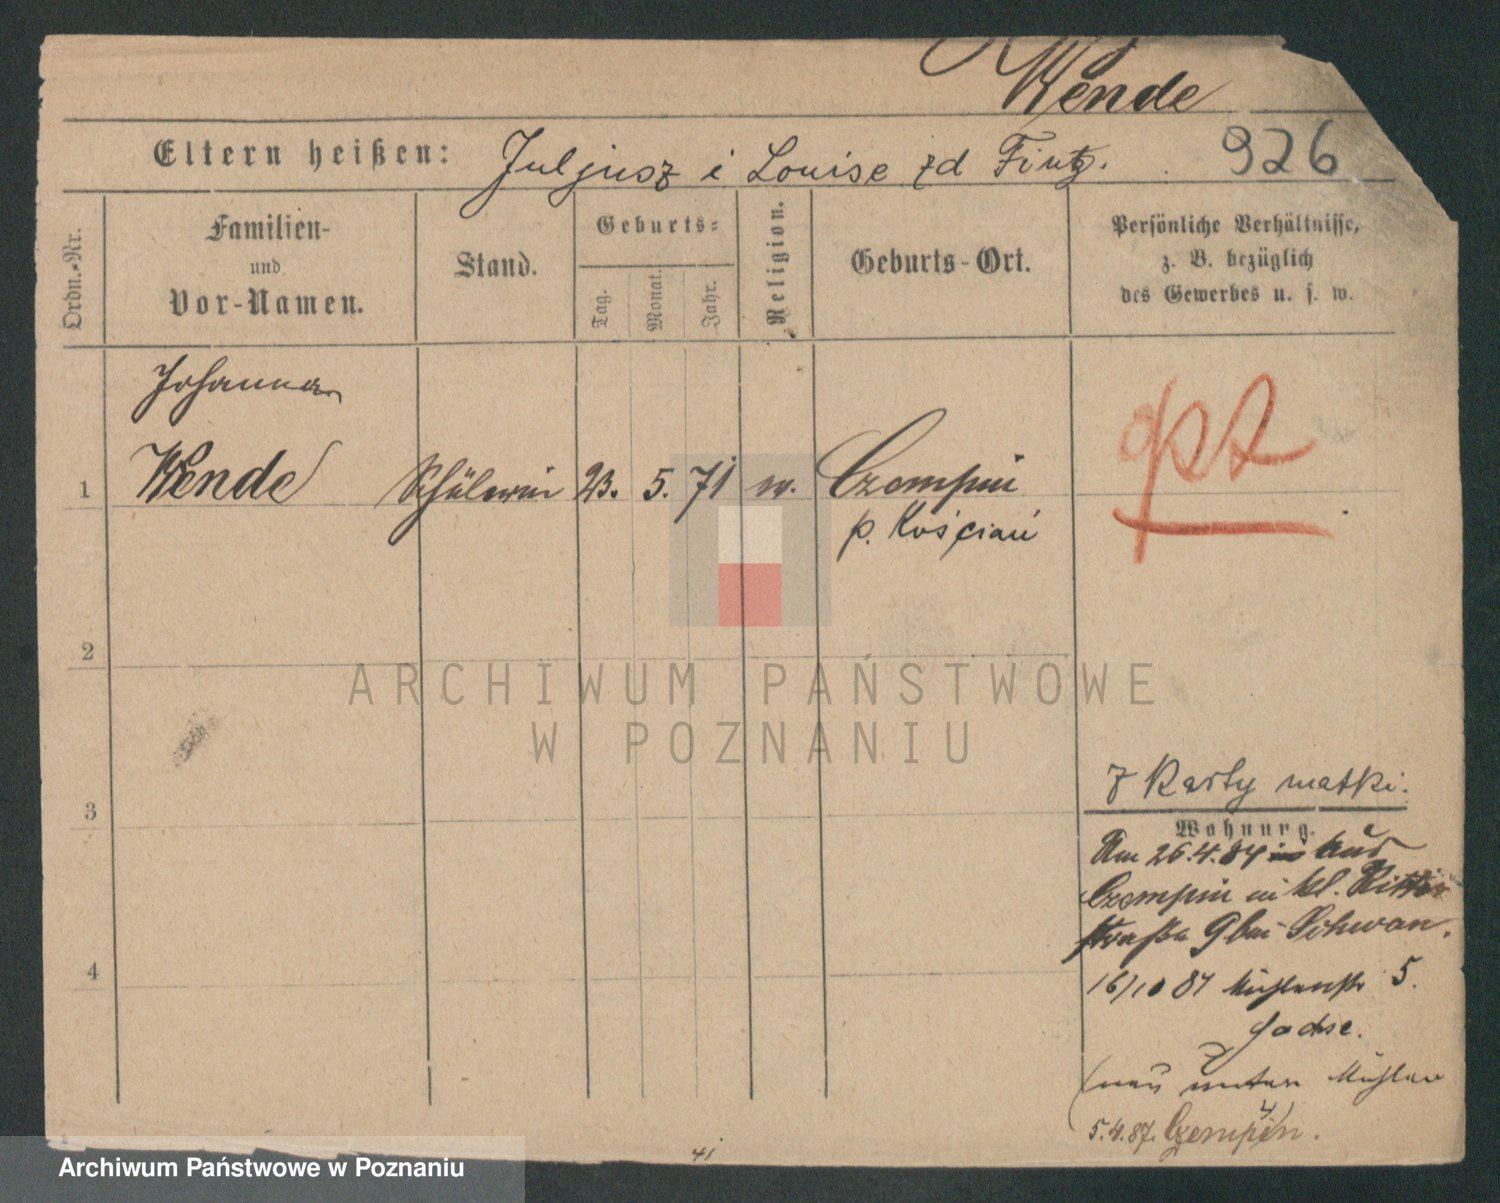 Wende
Eltern heißen: Juljusz i Louise zd Fintz. 926
Ordn.-Nr.
Familien-
und
Vor-Namen.
Stand.
Geburts-
Tag.
Monat.
Jahr.
Religion.
Geburts-Ort.
Persönliche Verhältnisse,
z. B. bezüglich
des Gewerbes u. s. w.
Johanna
1 Wende Schülerin 23. 5. 71 w. Czempin
p. Kościań
2
3
4
z Karty matki.
Wohnung.
Am 26.4.84 aus
Czempin in kl. Ritter
straße 9 bei Schwan.
16/10 87 Mühlenstr 5.
(neu unter Mühlen
5.4.87. Czempin.
41
ARCHIWUM PAŃSTWOWE
W POZNANIU
Archiwum Państwowe w Poznaniu